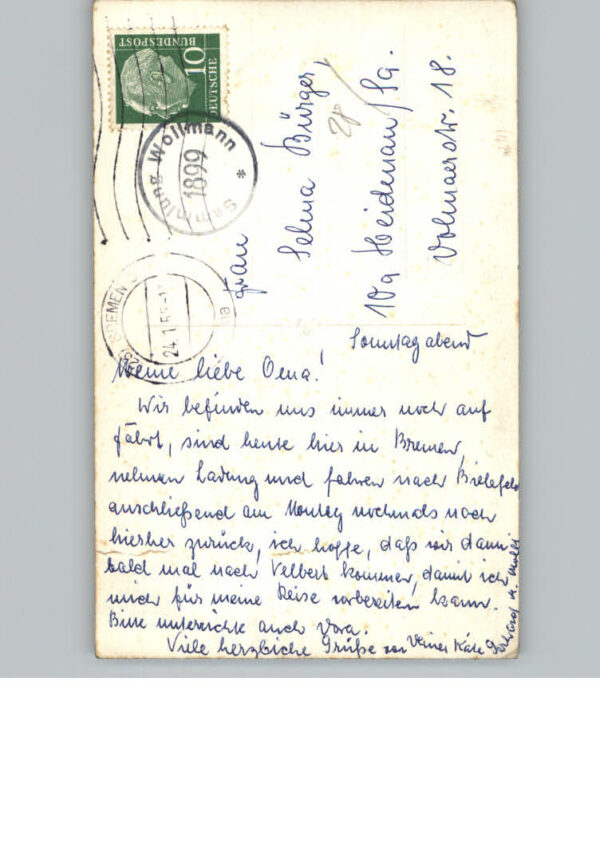 DEUTSCHE
BUNDESPOST
10
Sammlung Wollmann
1899
*
BREMEN
24.1.5
Frau
Selma Bürger,
10a Heidenau/Sa.
Volmaerstr. 18.
Sonntagabend
Meine liebe Oma!
Wir befinden uns immer noch auf
fährt, sind heute hier in Bremen,
nehmen Ladung und fahren nach Bielefeld
anschließend am Montag nochmals nach
hierher zurück, ich hoffe, daß wir dann
bald mal nach Velbert kommen, damit ich
mich für meine Reise vorbereiten kann.
Bitte unterrichte auch Vera.
Viele herzliche Grüße von Deiner Käte Gerhard u.